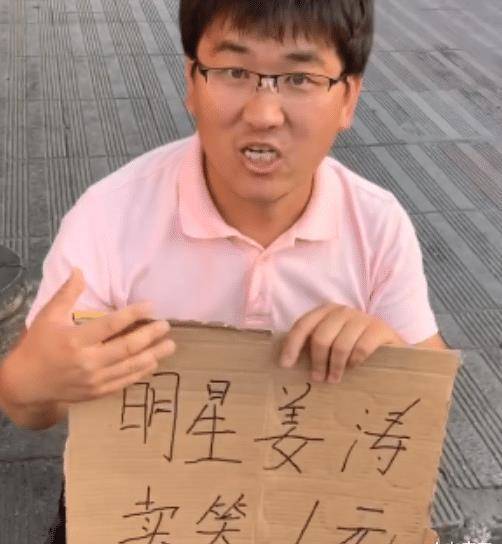 明星姜涛
卖笑1元